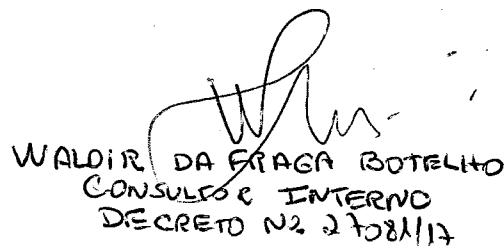 WALDIR DA FRAGA BOTELHO
CONSULTOR INTERNO
DECRETO Nº 27081/17